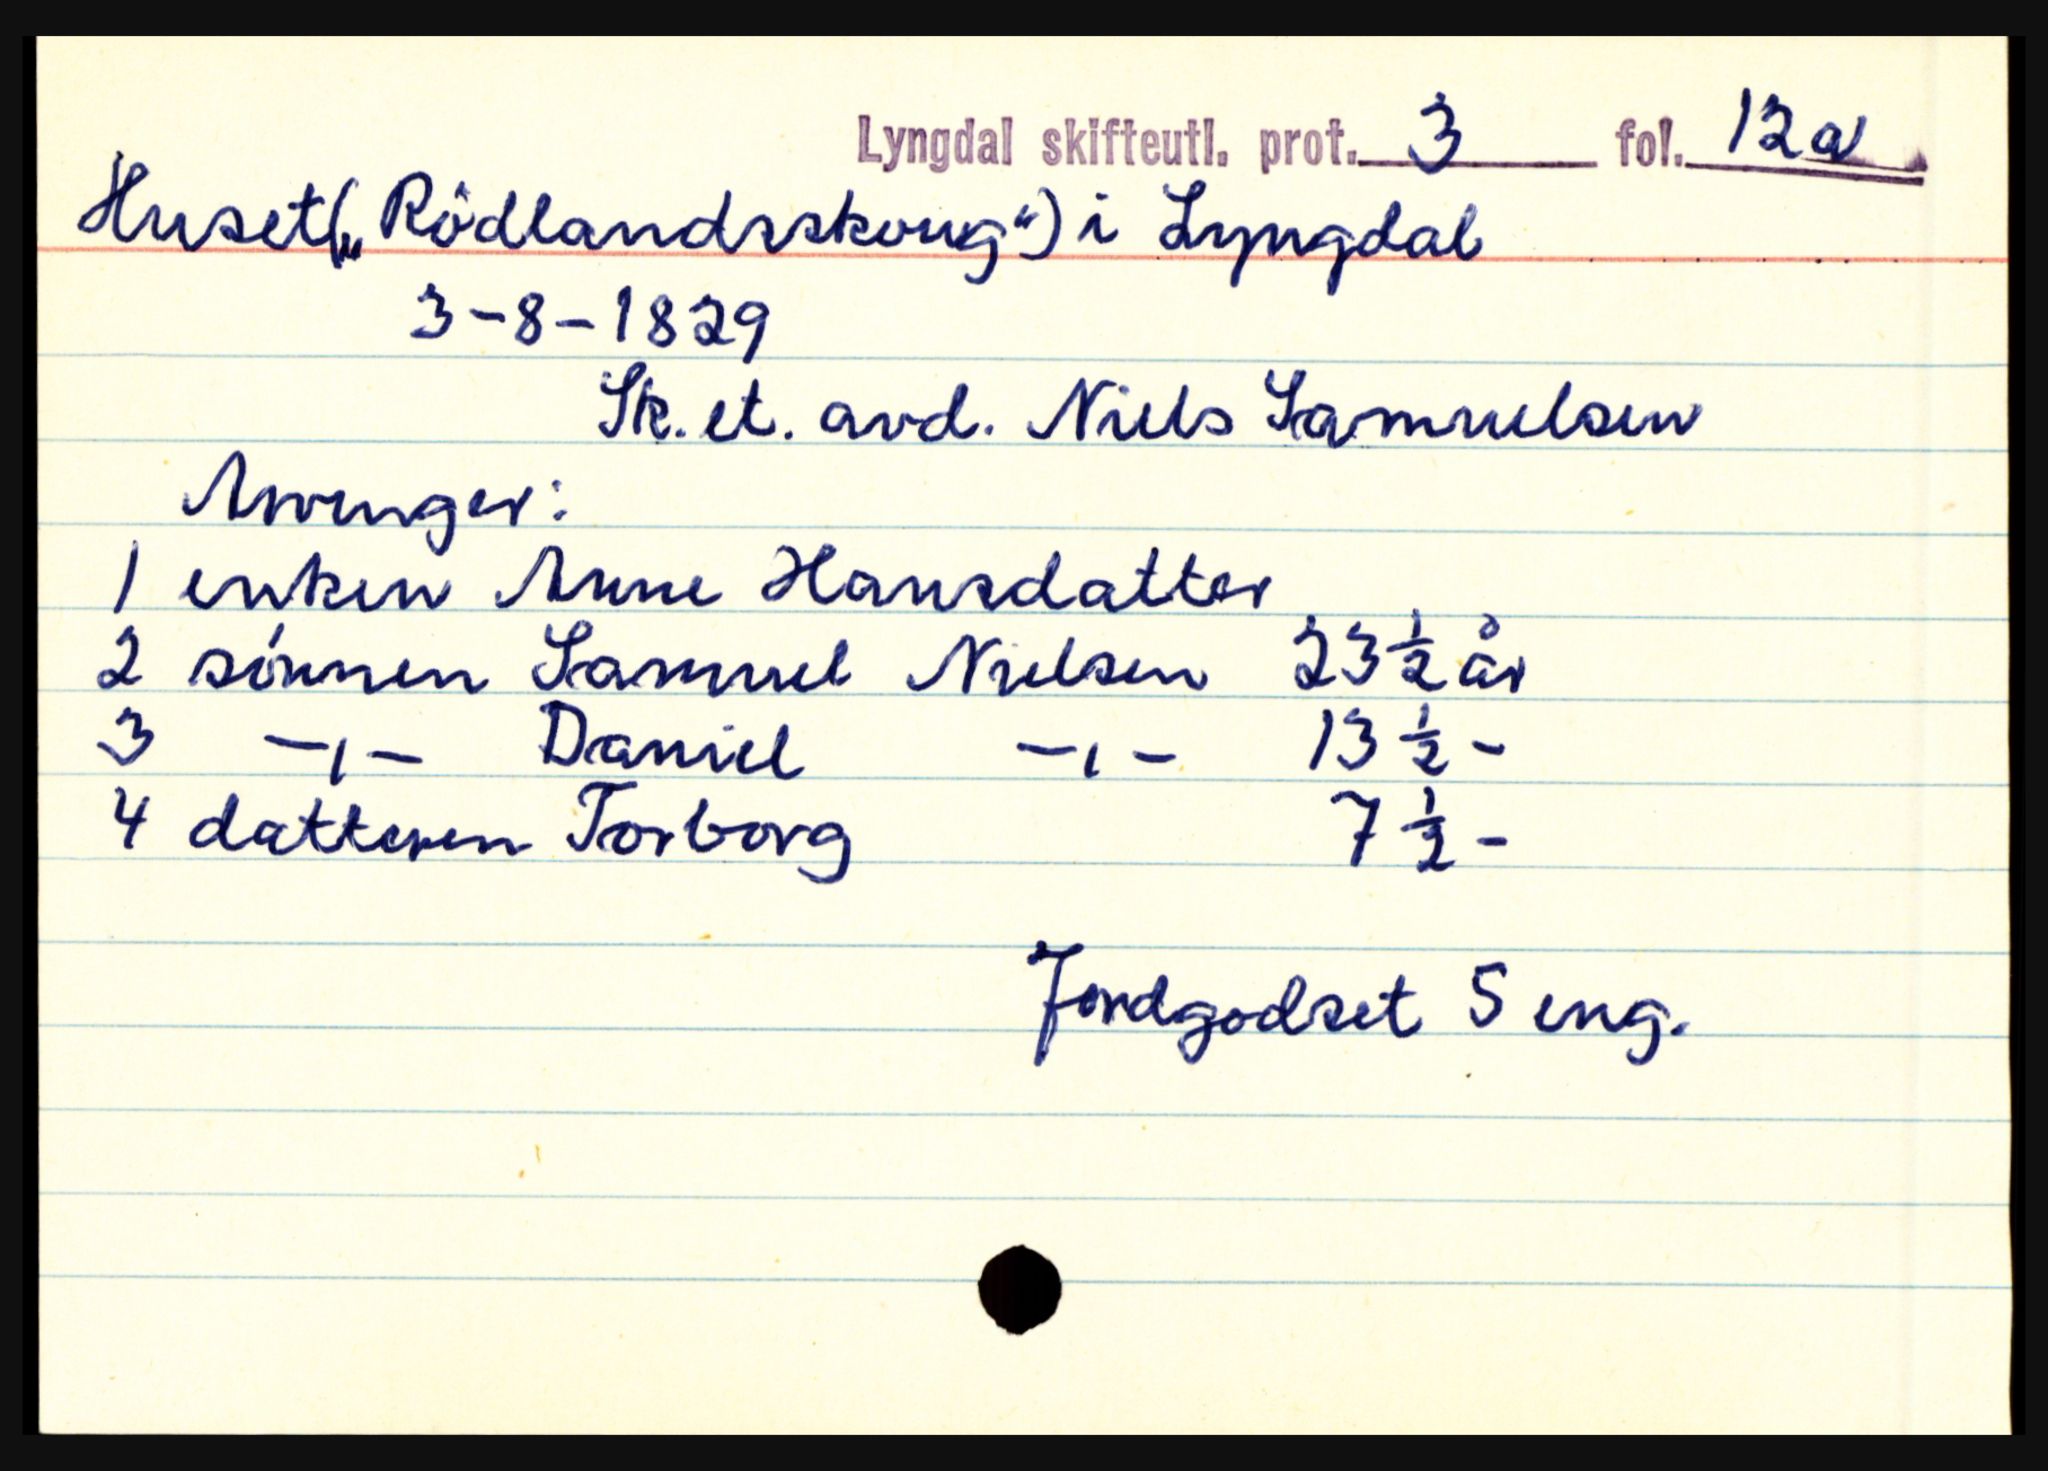 Lyngdal skifteutl. prot. 3 fol. 12a
Huset („Rödlandsskoug“) i Lyngdal
3-8-1829
Sk. et. avd. Niels Samuelsen
Arvinger:
1 enken Anne Hansdatter
2 sönnen Samuel Nielsen 23 1/2 år
3 -,- Daniel -,- 13 1/2 -
4 datteren Torborg 7 1/2 -
Jordgodset 5 eng.